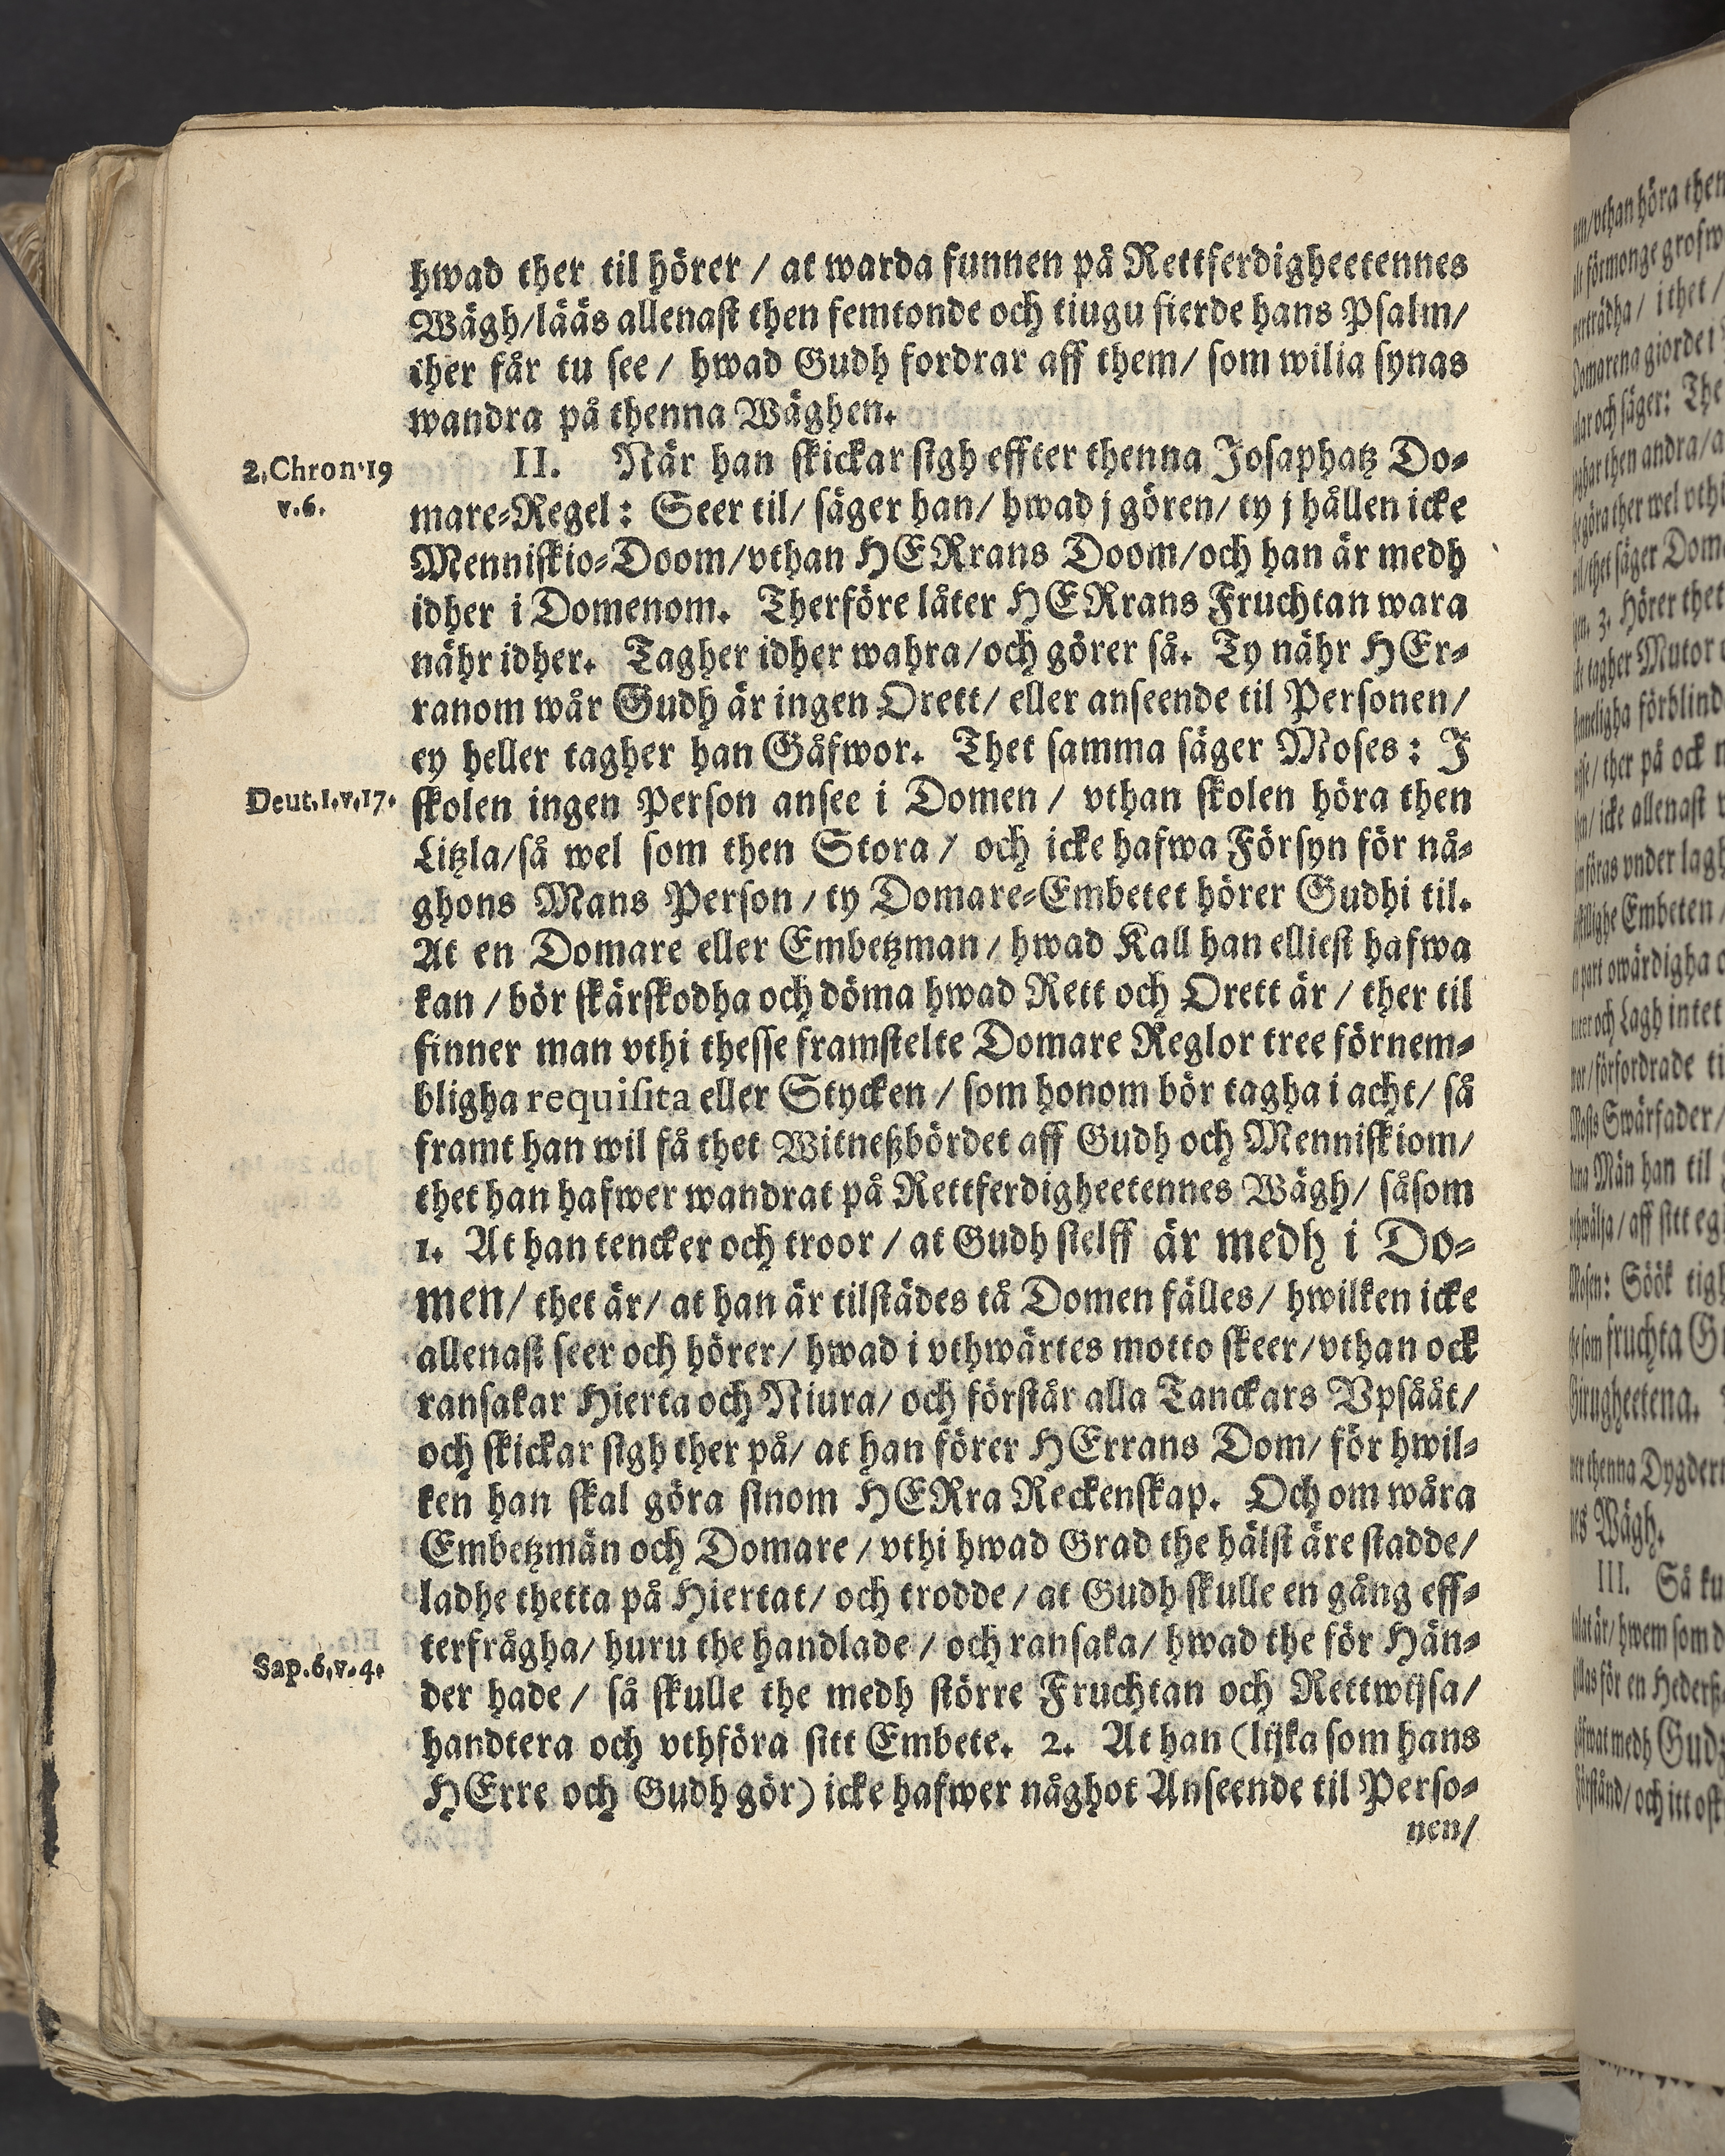 hwad ther til hörer / at warda funnen på Rettferdigheetennes
Wägh/lääs allenast then femtonde och tiugu fierde hans Psalm/
ther får tu see / hwad Gudh fordrar aff them/ som wilia synas
wandra på thenna Wäghen.
2. Chron. 19
v. 6.
II. När han skickar sigh effter thenna Josaphatz Do-
mare-Regel: Seer til/ säger han/ hwad j gören/ ty j hållen icke
Menniskio-Doom/vthan HERrans Doom/och han är medh
idher i Domenom. Therföre låter HERrans Fruchtan wara
nähr idher. Tagher idher wahra/och görer så. Ty nähr HEr-
ranom wår Gudh är ingen Orett/ eller anseende til Personen/
ey heller tagher han Gåfwor. Thet samma säger Moses: J
Deut. 1. v. 17.
skolen ingen Person ansee i Domen / vthan skolen höra then
Litzla/så wel som then Stora / och icke hafwa Försyn för nå-
ghons Mans Person / ty Domare-Embetet hörer Gudhi til.
At en Domare eller Embetzman / hwad Kall han elliest hafwa
kan / bör skärskodha och döma hwad Rett och Orett är / ther til
finner man vthi thesse framstelte Domare Reglor tree förnem-
bligha requisita eller Stycken / som honom bör tagha i acht/ så
framt han wil få thet Witneßbördet aff Gudh och Menniskiom/
thet han hafwer wandrat på Rettferdigheetennes Wägh/ såsom
1. At han tencker och troor / at Gudh sielff är medh i Do-
men/ thet är/ at han är tilstädes tå Domen fälles/ hwilken icke
allenast seer och hörer/ hwad i vthwärtes motto skeer/vthan ock
ransakar Hierta och Niura/ och förstår alla Tanckars Vpsååt/
och skickar sigh ther på/ at han förer HErrans Dom/ för hwil-
ken han skal göra sinom HERra Reckenskap. Och om wåra
Embetzmän och Domare / vthi hwad Grad the hälst äre stadde/
ladhe thetta på Hiertat/ och trodde / at Gudh skulle en gång eff-
terfrågha/ huru the handlade / och ransaka/ hwad the för Hän-
Sap. 6. v. 4.
der hade / så skulle the medh större Fruchtan och Rettwijsa/
handtera och vthföra sitt Embete. 2. At han (lijka som hans
HErre och Gudh gör) icke hafwer någhot Anseende til Perso-
nen/